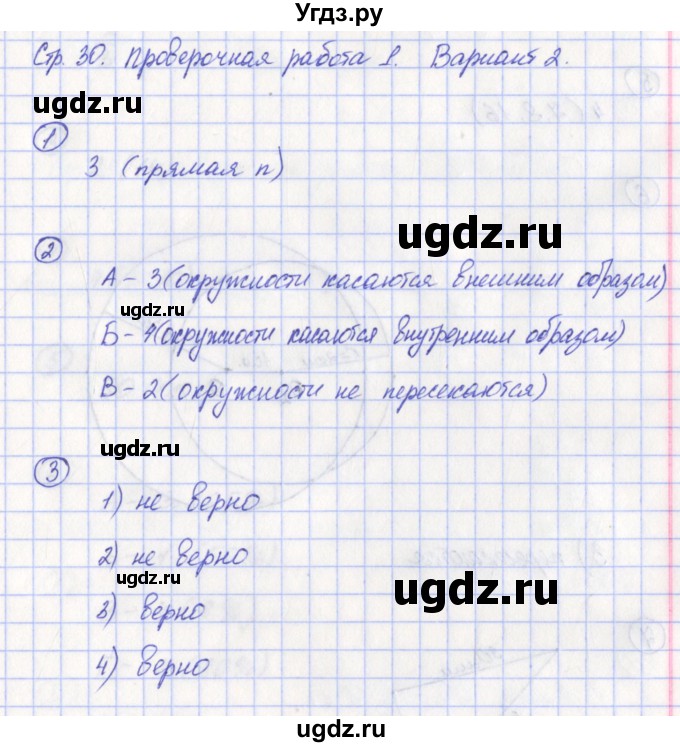 Угдз.ру
Стр. 30. Проверочная работа 1. Вариант 2.
ugdz.ru
1
3 (прямая п)
ugdz.ru
2
А - 3 (окружности касаются внешним образом)
ugdz.ru
Б - 4 (окружности касаются внутренним образом)
В - 2 (окружности не пересекаются)
ugdz.ru
3
1) не верно
2) не верно
ugdz.ru
ugdz.ru
3) верно
4) верно
ugdz.ru
ugdz.ru